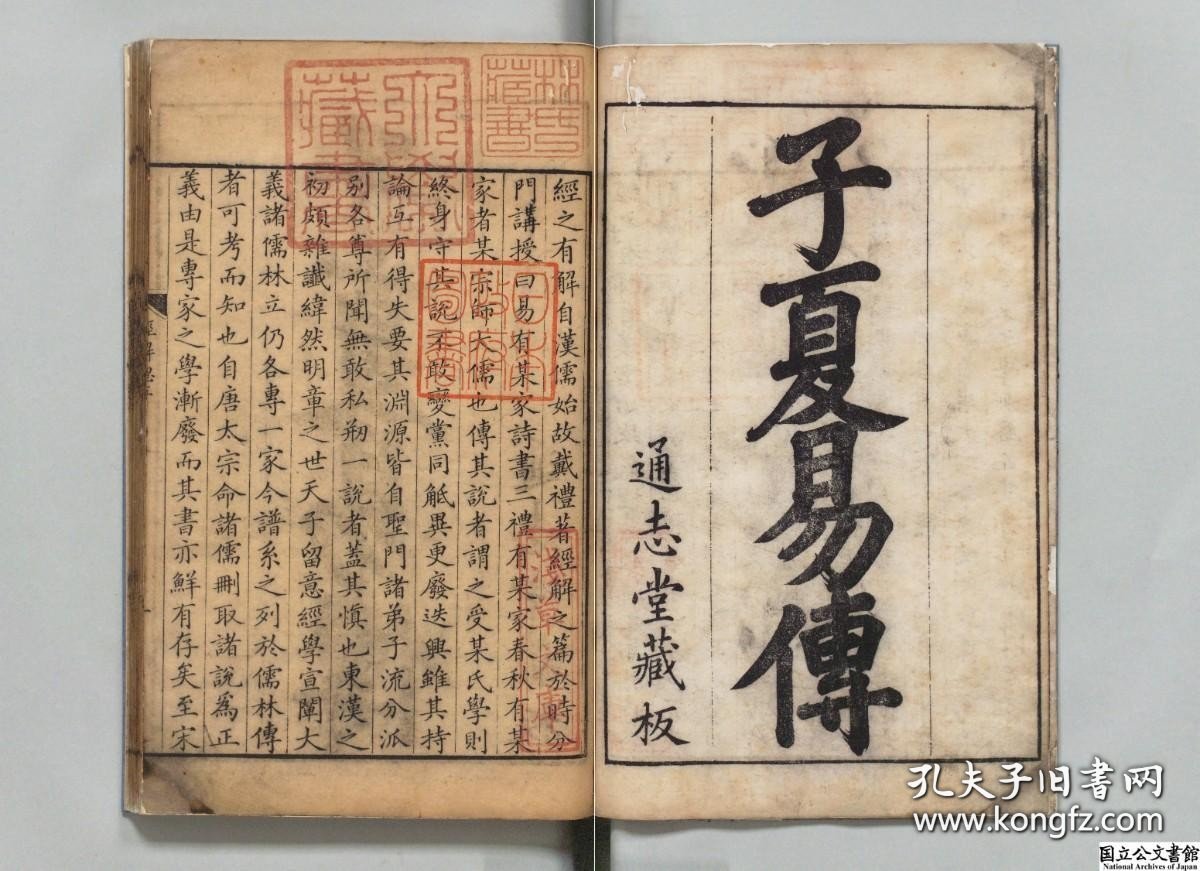 子夏易傳
通志堂藏板
經之有解自漢儒始故戴禮著經解之篇於時分
門講授曰易有某家詩書三禮有某家春秋有某
家者某宗師大儒也傳其說者謂之受某氏學則
終身守其說不敢變黨同觝異更廢迭興雖其持
論互有得失要其淵源皆自聖門諸弟子流分派
別各尊所聞無敢私刱一說者蓋其慎也東漢之
初頗雜讖緯然明章之世天子留意經學宣闡大
義諸儒林立仍各專一家今譜系之列於儒林傳
者可考而知也自唐太宗命諸儒刪取諸說為正
義由是專家之學漸廢而其書亦鮮有存矣至宋
林氏藏書
淺草文庫
孔夫子旧书网
www.kongfz.com
国立公文書館
National Archives of Japan